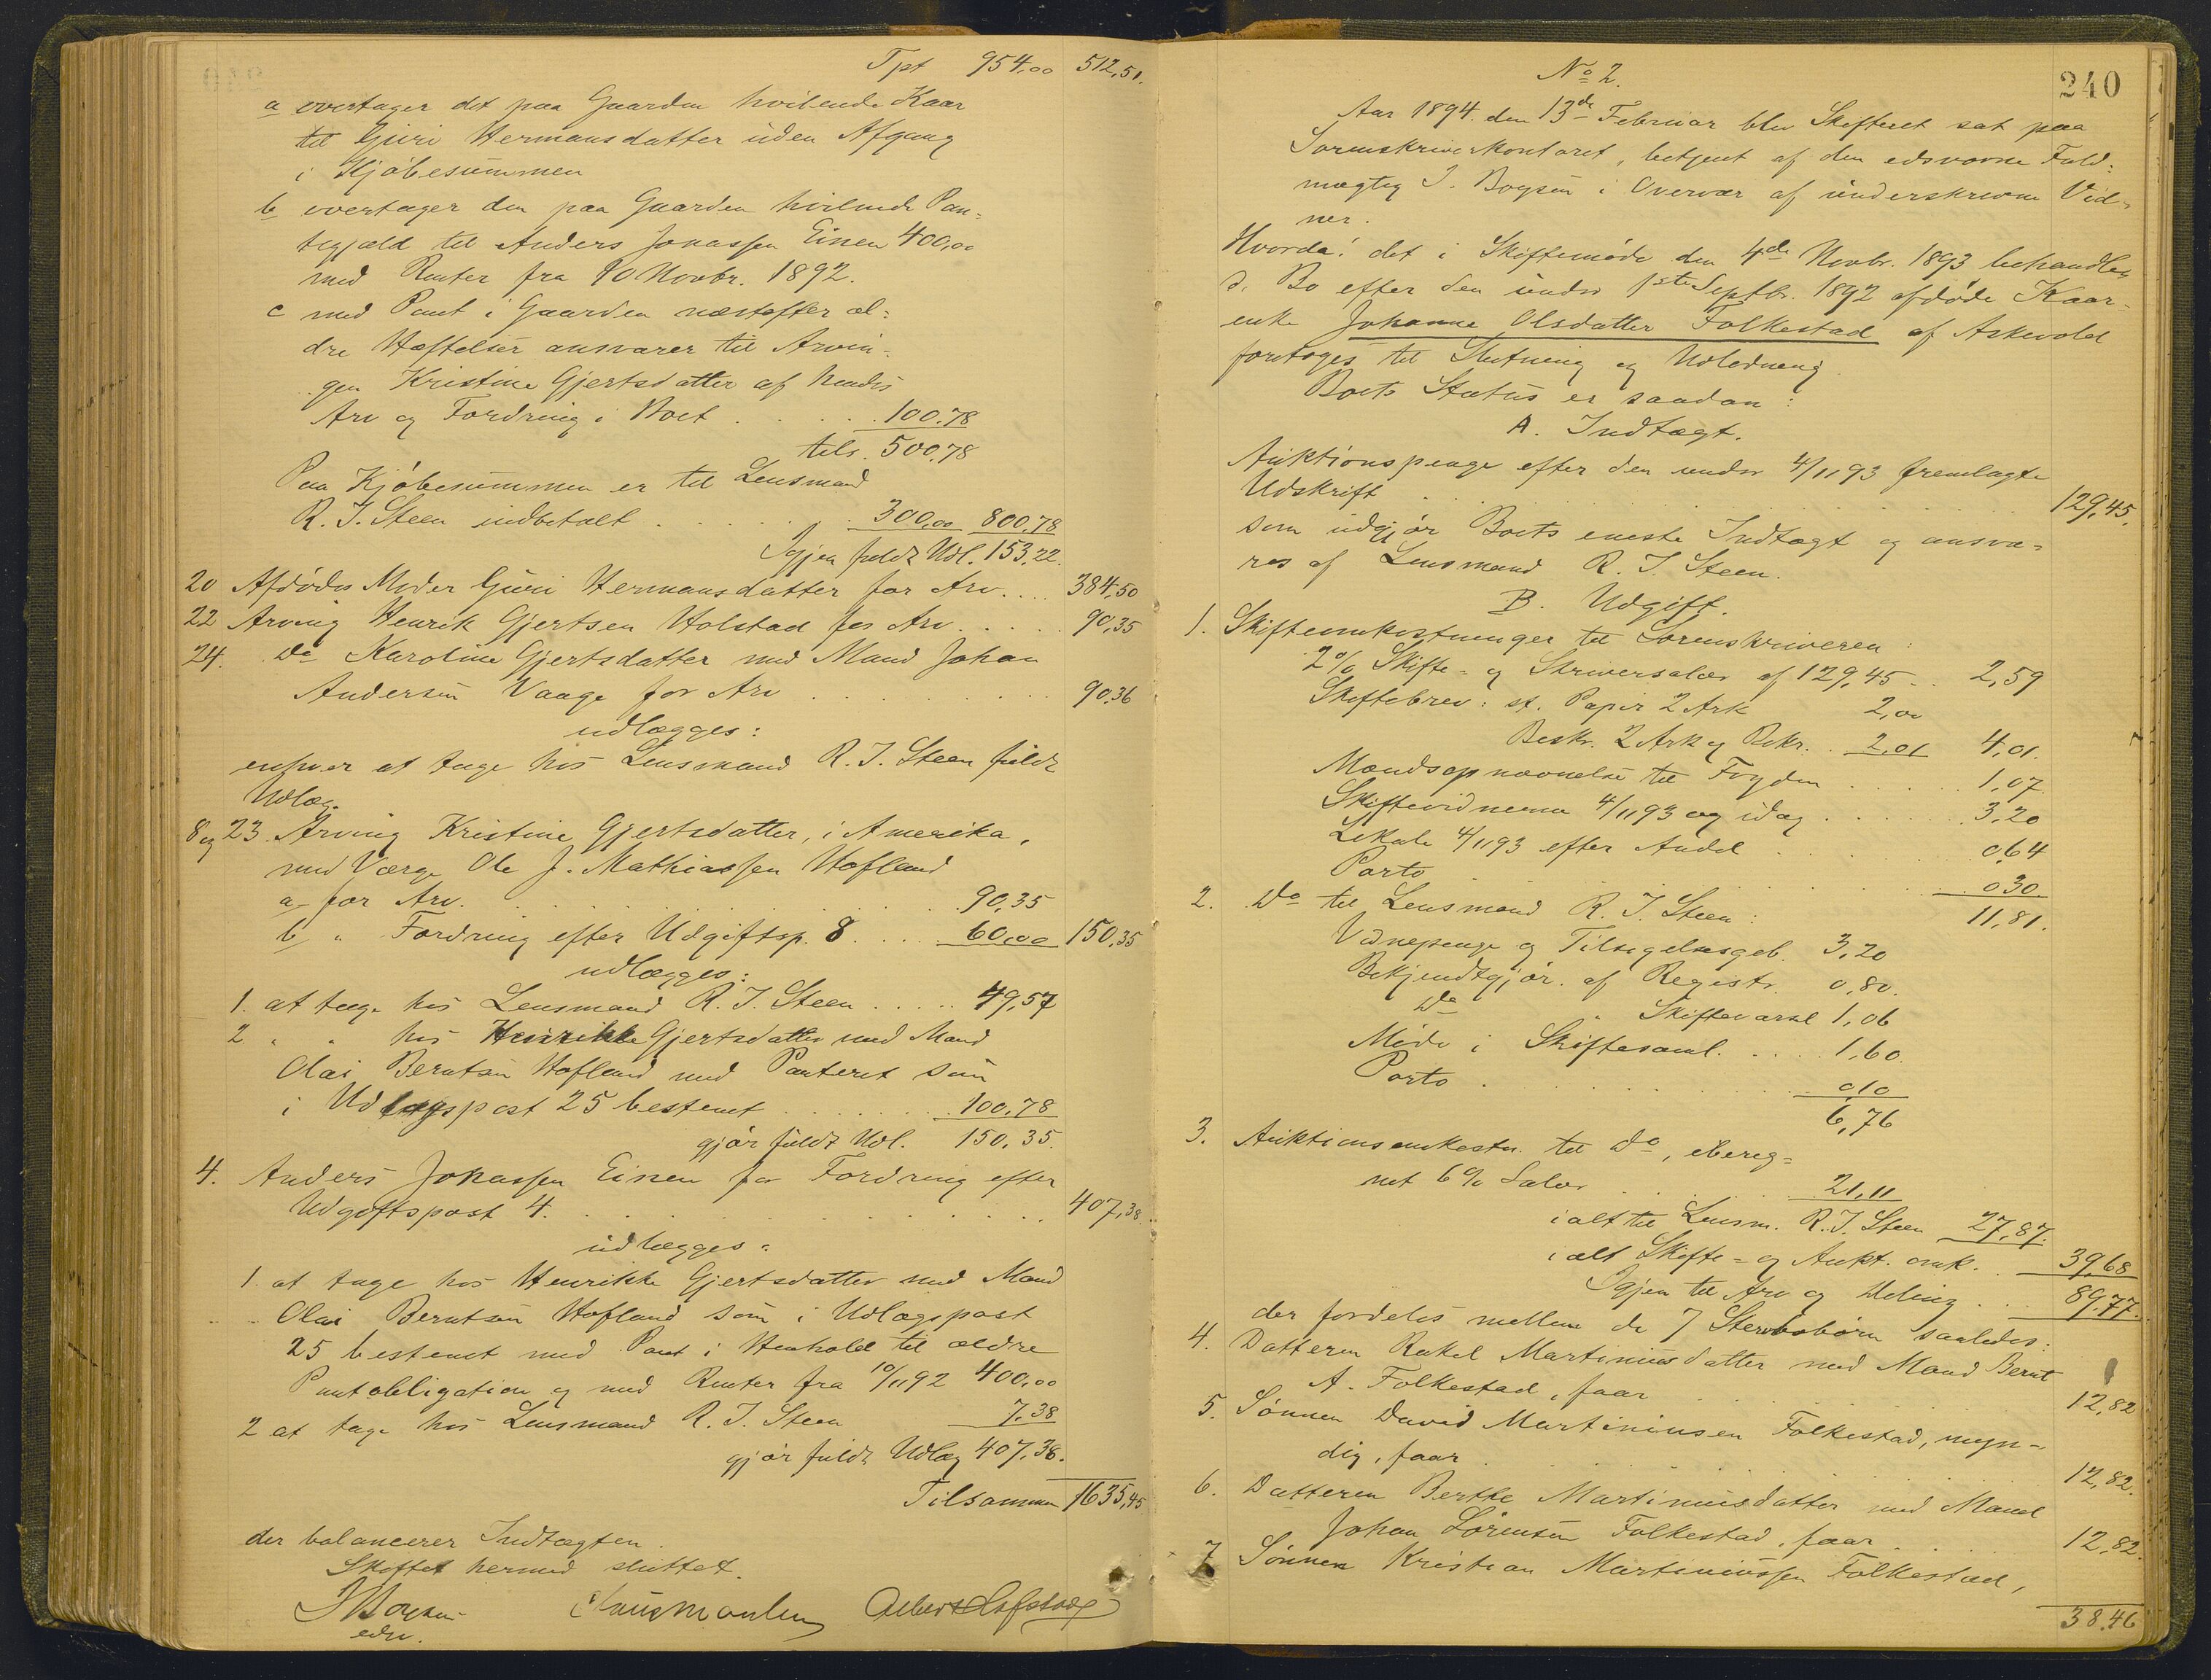 Tpt 954,00 512,51.
a overtager det paa Gaarden hvilende Kaar
til Guri Hermansdatter uden Afgang
i Kjøbesummen
b overtager den paa Gaarden hvilende Pan-
tegjæld til Anders Jonassen Einen 400,00
med Renter fra 10 Novbr. 1892.
c med Pant i Gaarden næstefter æl-
dre Hæftelser ansvarer til Arvin-
gen Kristine Gjertsdatter af hendes
Arv og Fordring i Boet . . . . 100.78
tils. 500,78
Paa Kjøbesummen er til Lensmand
R. J. Steen indbetalt . . . . . 300,00 800,78
Igjen fuldt Udl. 153,22.
20 Afdødes Moder Guri Hermansdatter for Arv. . . . 384,50
22 Arving Henrik Gjertsen Holstad for Arv . . . . . 90,35
24. Do Karoline Gjertsdatter med Mand Johan
Andersen Vaage for Arv . . . . . . . . 90,36
udlægges:
enhver at tage hos Lensmand R. J. Steen fuldt
Udlæg.
8 og 23. Arving Kristine Gjertsdatter, i Amerika,
med Værge Ole J. Mathiassen Hofland
a for Arv. . . . . . . . . . . 90,35
b " Fordring efter Udgiftsp. 8 . . . . 60,00 150,35
udlægges:
1. at tage hos Lensmand R. J. Steen . . . . . 49,57
2 " " hos Henrikke Gjertsdatter med Mand
Olai Berntsen Hofland med Panteret som
i Udlægspost 25 bestemt . . . . . . 100,78
gjør fuldt Udl. 150,35.
4. Anders Jonassen Einen for Fordring efter
Udgiftspost 4. . . . . . . . . . . . . 407,38.
udlægges:
1. at tage hos Henrikke Gjertsdatter med Mand
Olai Berntsen Hofland som i Udlægspost
25 bestemt med Pant i Henhold til ældre
Pantobligation og med Renter fra 10/11 92 400,00
2 at tage hos Lensmand R. J. Steen 7,38
gjør fuldt Udlæg 407,38.
Tilsammen 1635,45
der balancerer Indtægten.
Skiftet hermed sluttet.
J Boysen
edsv.
240
No 2.
Aar 1894. den 13de Februar blev Skifteret sat paa
Sorenskriverkontoret, betjent af den edsvorne Fuld-
mægtig J. Boysen i Overvær af underskrevne Vid-
ner.
Hvorda: det i Skiftemøde den 4de Novbr. 1893 behandlede
D. Bo efter den under 1ste Septbr. 1892 afdøde Kaar-
enke Johanne Olsdatter Folkestad af Askevold
foretoges til Slutning og Udlodning.
Boets Status er saadan:
A. Indtægt.
Auktionspenge efter den under 4/11 93 fremlagte
Udskrift . . . . . . . . . . . . . 129,45.
som udgjør Boets eneste Indtægt og ansva-
res af Lensmand R. J. Steen.
B. Udgift.
1. Skifteomkostninger til Sorenskriveren:
2% Skifte- og Skriversalær af 129,45 . . 2,59
Skiftebrev: st. Papir 2 Ark 2,00
Beskr. 2 Ark og Bekr. . 2,01 4,01.
Mandsopnævnelse til Fogden . . . . . 1,07
Skiftevidnerne 4/11 93 og idag . . . . . . 3,20
Lokale 4/11 93 efter Andel . . . . . . 0,64
Porto . . . . . . . . . . . 0 30
11,81.
2. Do til Lensmand R. J. Steen:
Vidnepenge og Tilsigelsesgeb. 3,20
Bekjendtgjør. af Registr. 0,80.
Do " Skiftevarsel 1,06
Møde i Skiftesaml. . . . . 1,60.
Porto . . . . . . . . 0,10
6,76
3. Auktionsomkostn. til Do, ibereg-
net 6% Salær . . . . . . 21,11
ialt til Lensm. R. J. Steen 27,87.
ialt Skifte- og Aukt. omk. . . 39,68
Igjen til Arv og Deling . . . 89,77.
der fordeles mellem de 7 Stervbobørn saaledes:
4. Datteren Rakel Martinusdatter med Mand Bernt
A. Folkestad, faar . . . . . . . . 12,82
5. Sønnen David Martinusen Folkestad, myn-
dig, faar . . . . . . . . . . 12,82.
6. Datteren Berthe Martinusdatter med Mand
Johan Sørensen Folkestad, faar . . . . . 12,82.
7 Sønnen Kristian Martinussen Folkestad,
38.46